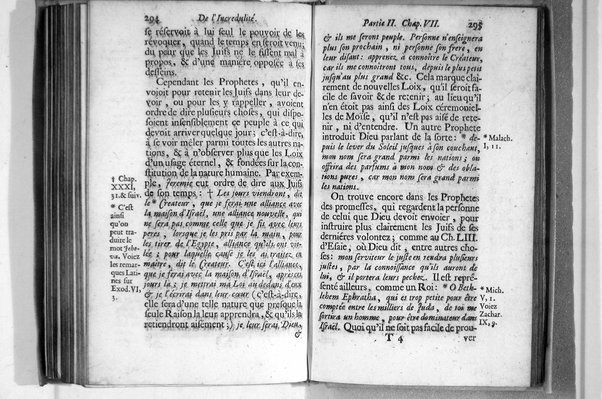 294 De l'Incredulité.
se réservoit à lui seul le pouvoir de les
révoquer, quand le temps en seroit venu;
de peur que les Juifs ne le fissent mal à
propos, & d'une manière opposée à ses
desseins.
Cependant les Prophetes, qu'il en-
voioit pour retenir les Juifs dans leur de-
voir, ou pour les y rappeller, avoient
ordre de dire plusieurs choses, qui dispo-
soient insensiblement ce peuple à ce qui
devoit arriver quelque jour; c'est-à-dire,
à se voir mêler parmi toutes les autres na-
tions, & à n'observer plus que les Loix
d'un usage éternel, & fondées sur la cons-
titution de la nature humaine. Par exem-
ple, Jeremie eut ordre de dire aux Juifs
de son temps: † Les jours viendront, dit
le * Createur, que je ferai une alliance avec
la maison d'Israël, une alliance nouvelle, qui
ne sera pas comme celle que je fis avec leurs
peres, lorsque je les pris par la main, pour
les tirer de l'Egypte, alliance qu'ils ont vio-
lée; pour laquelle cause je les ai traitez en
maître, dit le Createur. C'est ici l'alliance,
que je ferai avec la maison d'Israël, après ces
jours là; je mettrai ma Loi au dedans d'eux
& je l'écrirai dans leur cœur (c'est-à-dire,
elle sera d'une telle nature que presque la
seule Raison la leur apprendra, & qu'ils la
retiendront aisément;) je leur serai Dieu,
&
† Chap.
XXXI,
31. & suiv.
* C'est
ainsi
qu'on
peut tra-
duire le
mot Jeho-
va. Voiez
les remar-
ques Lati-
nes sur
Exod. VI,
3.
Partie II. Chap. VII. 295
& ils me seront peuple. Personne n'enseignera
plus son prochain, ni personne son frere, en
leur disant: apprenez à connoître le Createur,
car ils me connoîtront tous, depuis le plus petit
jusqu'au plus grand &c. Cela marque clai-
rement de nouvelles Loix, qu'il seroit fa-
cile de savoir & de retenir; au lieu qu'il
n'en étoit pas ainsi des Loix céremoniel-
les de Moïse, qu'il n'est pas aisé de rete-
nir, ni d'entendre. Un autre Prophete
introduit Dieu parlant de la sorte: * de-
puis le lever du Soleil jusques à son couchant,
mon nom sera grand parmi les nations; on
offrira des parfums à mon nom & des obla-
tions pures, car mon nom sera grand parmi
les nations.
On trouve encore dans les Prophetes
des promesses, qui regardent la personne
de celui que Dieu devoit envoier, pour
instruire plus clairement les Juifs de ses
dernieres volontez; comme au Ch. LIII.
d'Esaïe, où Dieu dit, entre autres cho-
ses: mon serviteur le juste en rendra plusieurs
justes, par la connoissance qu'ils auront de
lui, & il portera leurs pechez. Il est repré-
senté ailleurs, comme un Roi: * O Beth-
lehem Ephratha, qui es trop petite pour être
comptée entre les milliers de Juda, de toi me
sortira un homme, pour être dominateur dans
Israël. Quoi qu'il ne soit pas facile de prou-
T 4 ver
* Malach.
I, 11.
* Mich.
V, 1.
Voiez
Zachar.
IX, 9.